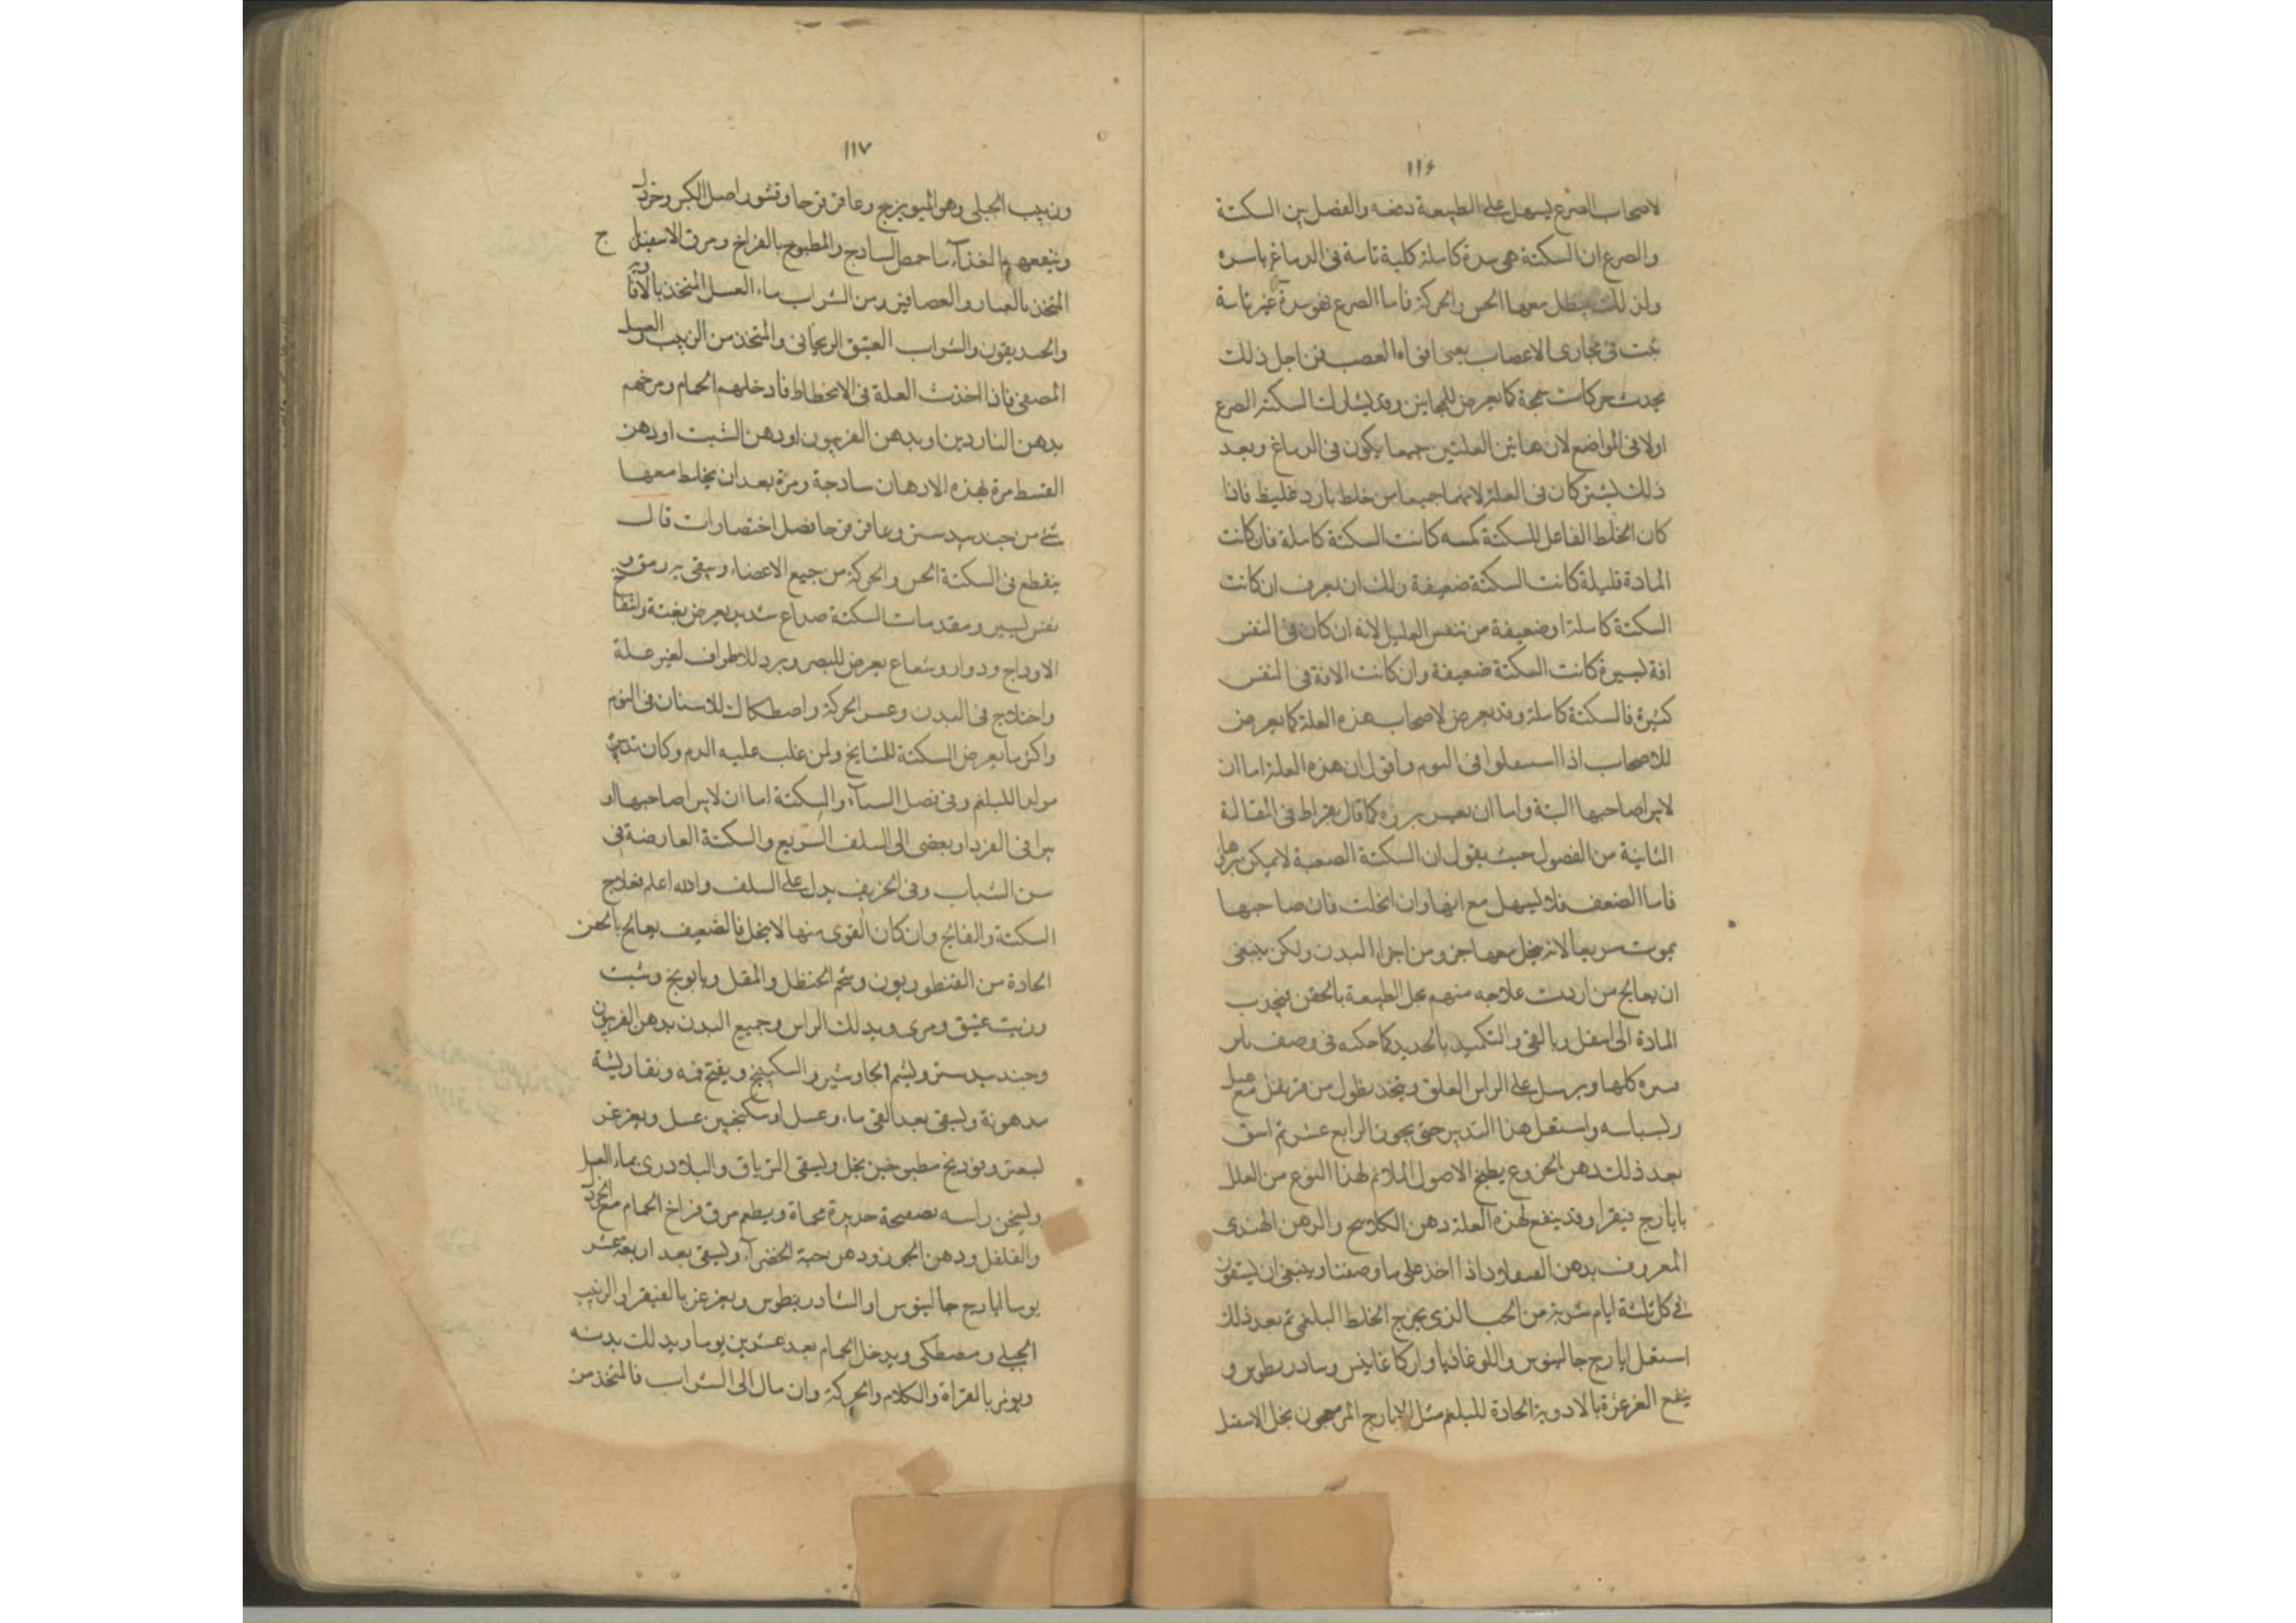 ١١۶
لاصحاب الصرع ليسهل على الطبيعة دفعه والفصل بين السكتة
والصرع ان السكتة هى سدة كاملة كلية تامة فى الدماغ باسره
ولذلك يبطل معها الحس والحركة فاما الصرع فهو سدة غير تامة
فى مجارى الاعصاب يعنى افواه العصب فمن اجل ذلك
يحدث حركات سمجة كما يعرض للمجانين وقد يشارك السكتة الصرع
اولا فى المواضع لان هاتين العلتين جميعا يكون فى الدماغ وبعد
ذلك يشتركان فى العلة لانهما جميعا من خلط بارد غليظ فاذا
كان الخلط الفاعل للسكتة كانت السكتة كاملة فان كانت
المادة قليلة كانت السكتة ضعيفة ولك ان يعرف ان كانت
السكتة كاملة او ضعيفة من تنفس العليل لانه ان كان فى النفس
افة يسيرة كانت السكتة ضعيفة وان كانت الافة فى النفس
كثيرة فالسكتة كاملة وقد يعرض لاصحاب هذه العلة كما يعرض
للاصحاب اذا فى النوم واقول ان هذه العلة اما ان
لا يبرا صاحبها البتة واما ان يعسر برؤه كما قال بقراط فى المقالة
الثانية من الفصول حيث يقول ان السكتة الصعبة لا يمكن برؤها
فاما الضعف فلا يسهل مع انها وان انحلت فان صاحبها
يموت سريعا لانه ينحل معها جزو من اجزا البدن ولكن ينبغى
ان يعالج من اردت علاجه منهم بحل الطبيعة بالحقن فيجذب
المادة الى اسفل وبالقى والتكميد بالحديد كما حكيه فى وصف
كلها ويرسل على الراس العلق ويتخذ نطول من قرنفل مع عسل
وبسباسه واستعمل هذا التدبير حتى يجوز الرابع عشر ثم اسق
بعد ذلك دهن الخروع بطبخ الاصول الملائم لهذا النوع من العلل
بايارج فيقرا وقد ينفع لهذه العلة دهن الكلاكلح والدهن الهندى
المعروف بدهن اذا اخذ على ما وصفنا وينبغى ان يسقون
فى كل ثلثة ايام شربة من الحب الذى يخرج الخلط البلغمى ثم بعد ذلك
استعمل ايارج جالينوس واللوغاذيا واركاغانيس وسادريطوس و
ينفع الغرغرة بالادوية الحادة للبلغم مثل الايارج المعجون بخل الاسقيل
١١٧
وزبيب الجبلى وهو الميويزج وعاقرقرحا وقشور اصل الكبر وخردل
وينفعهم والغذآء ماء حمص الساذج والمطبوخ بالفراخ ومرق الاسفيذباج
المتخذ بالقنابر والعصافير ومن الشراب ماء العسل المتخذ بالافاويه
والخديقون والشراب العتيق الريحانى والمتخذ من الزبيب والعسل
المصفى فاذا اخذت العلة فى الانحطاط فادخلهم الحمام ومرخهم
بدهن الناردين او بدهن الفربيون او دهن الشبت او دهن
القسط مرة لهذه الادهان ساذجة ومرة بعد ان يخلط معها
شئ من جندبيدستر وعاقرقرحا فصل اختصارات قال
ينقطع فى السكتة الحس والحركة من جميع الاعضاء ويبقى به رمق و
نفس يسير ومقدمات السكتة صداع شديد يعرض بغتة وانتفاخ
الاوداج ودوار وشعاع يعرض للبصر وبرد للاطراف لغير علة
واختلاج فى البدن وعسر الحركة واصطكاك للاسنان فى النوم
واكثر ما يعرض السكتة للمشايخ ولمن غلب عليه الدم وكان تدبيره
مولدا للبلغم وفى فصل الشتآء والسكتة اما ان لا يبرا صاحبها او
يبرا فى الفرد او يفضى الى السلف السريع والسكتة العارضة فى
سن الشباب وفى الخريف يدل على السلف والله اعلم فعلاج
السكتة والفالج وان كان القوى منها لا ينحل فالضعيف يعالج بالحقن
الحادة من القنطوريون وشحم الحنظل والمقل وبابونج وشبت
وزيت عتيق ومرى ويدلك الراس وجميع البدن بدهن الفربيون
وجندبيدستر ويشم الجاوشير والسكبينج ويفتح فمه ونقا ريشة
مدهونة ويسقى بعد القى ماء وعسل او سكنجبين عسل ويغرغر
بسعتر وفودنج مطبوخين بخل ويسقى الترياق والبلادرى بماء العسل
ويسخن راسه بصفيحة حديدة محماة ويطعم مرق فراخ الحمام مع الخردل
والفلفل ودهن الجوز ودهن حبة الخضرآء ويسقى بعد اربعة عشر
يوما ايارج جالينوس او الشادريطوس ويغرغر بالفيقرا والزبيب
الجبلى ومصطكى ويدخل الحمام بعد عشرين يوما ويدلك بدنه
ويومر بالقراة والكلام والحركة وان مال الى الشراب فالمتخذ من